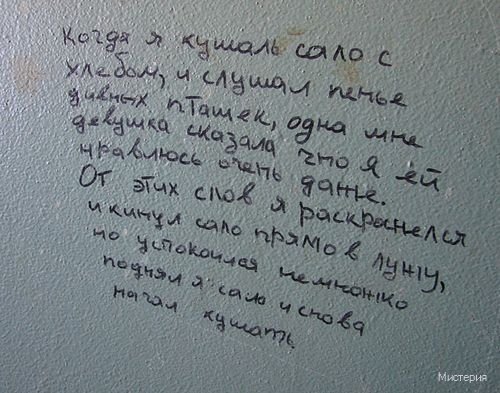 Когда я кушаль сало с
хлебом, и слушал пенье
дивных пташек, одна мне
девушка сказала что я ей
нравлюсь очень даже.
От этих слов я раскраснелся
и кинул сало прямо в лужу,
но успокоился немножко
поднял я сало и снова
начал кушать.
Мистерия